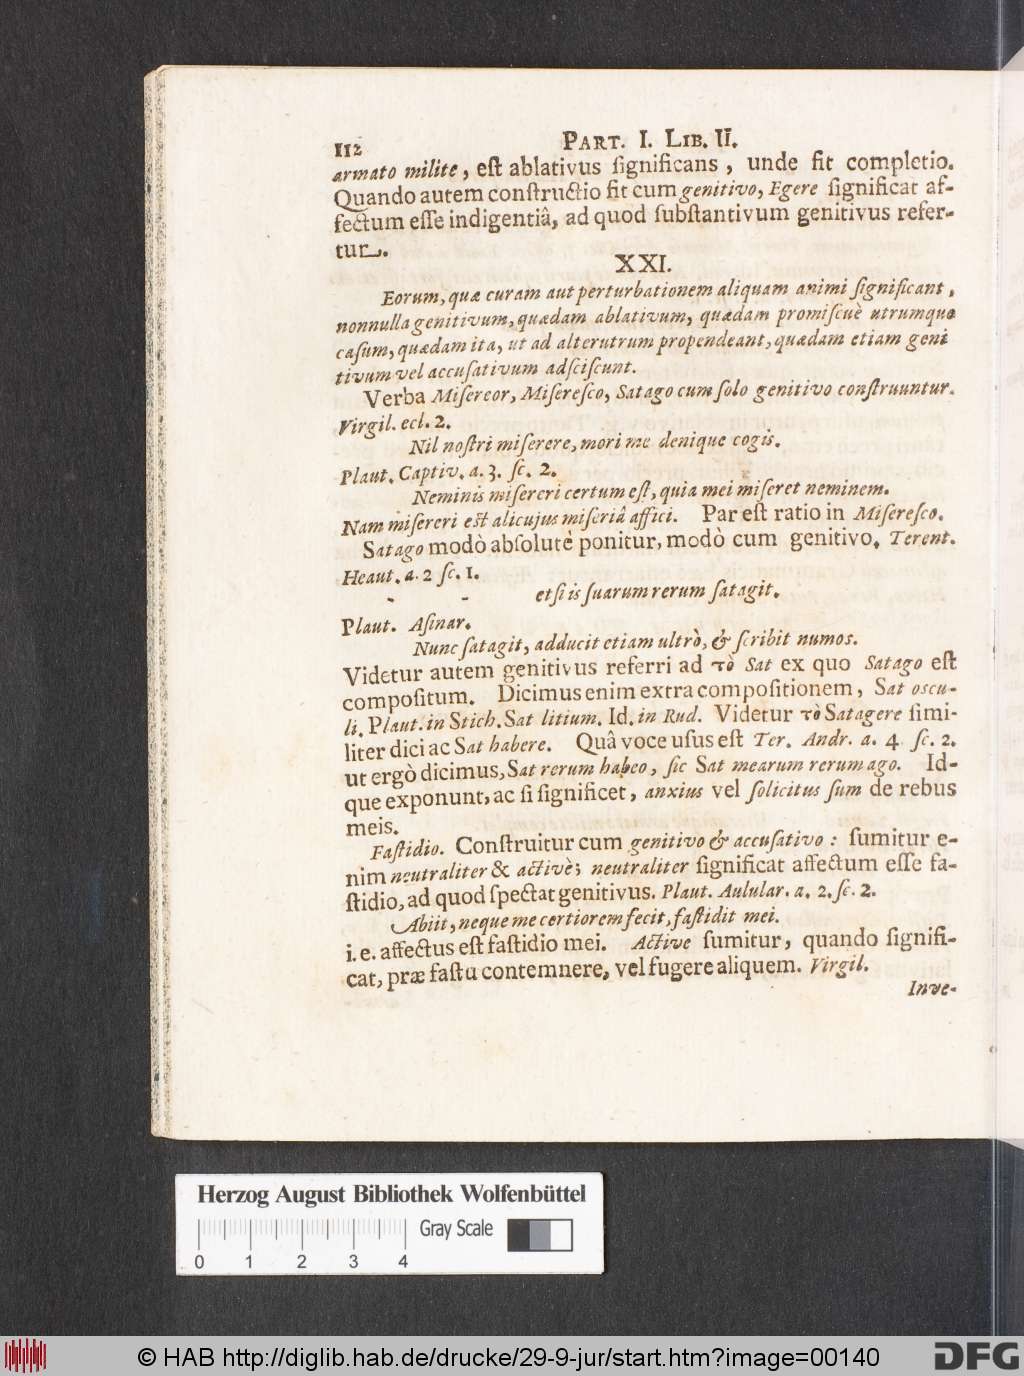 112 PART. I. LIB. II.
armato milite, eſt ablativus ſignificans, unde fit completio.
Quando autem conſtructio fit cum genitivo, Egere ſignificat af-
fectum eſſe indigentiâ, ad quod ſubſtantivum genitivus refer-
tur.
XXI.
Eorum, quæ curam aut perturbationem aliquam animi ſignificant,
nonnulla genitivum, quædam ablativum, quædam promiſcuè utrumque
caſum, quædam ita, ut ad alterutrum propendeant, quædam etiam geni
tivum vel accuſativum adſciſcunt.
Verba Miſereor, Miſereſco, Satago cum ſolo genitivo conſtruuntur.
Virgil. ecl. 2.
Nil noſtri miſerere, mori me denique cogis.
Plaut. Captiv. a. 3. ſc. 2.
Neminis miſereri certum eſt, quia mei miſeret neminem.
Nam miſereri eſt alicujus miſeriâ affici. Par eſt ratio in Miſereſco.
Satago modò abſolutè ponitur, modò cum genitivo. Terent.
Heaut. a. 2 ſc. 1.
- - etſi is ſuarum rerum ſatagit.
Plaut. Aſinar.
Nunc ſatagit, adducit etiam ultrò, & ſcribit numos.
Videtur autem genitivus referri ad τὸ Sat ex quo Satago eſt
compoſitum. Dicimus enim extra compoſitionem, Sat oscu-
li. Plaut. in Stich. Sat litium. Id. in Rud. Videtur τὸ Satagere ſimi-
liter dici ac Sat habere. Quâ voce uſus eſt Ter. Andr. a. 4 ſc. 2.
ut ergò dicimus, Sat rerum habeo, ſic Sat mearum rerum ago. Id-
que exponunt, ac ſi ſignificet, anxius vel ſolicitus ſum de rebus
meis.
Faſtidio. Conſtruitur cum genitivo & accuſativo: ſumitur e-
nim neutraliter & activè; neutraliter ſignificat affectum eſſe fa-
ſtidio, ad quod ſpectat genitivus. Plaut. Aulular. a. 2. ſc. 2.
Abiit, neque me certiorem fecit, faſtidit mei.
i. e. affectus eſt faſtidio mei. Active ſumitur, quando ſignifi-
cat, præ faſtu contemnere, vel fugere aliquem. Virgil.
Inve-
Herzog August Bibliothek Wolfenbüttel
Gray Scale
0 1 2 3 4
© HAB http://diglib.hab.de/drucke/29-9-jur/start.htm?image=00140
DFG